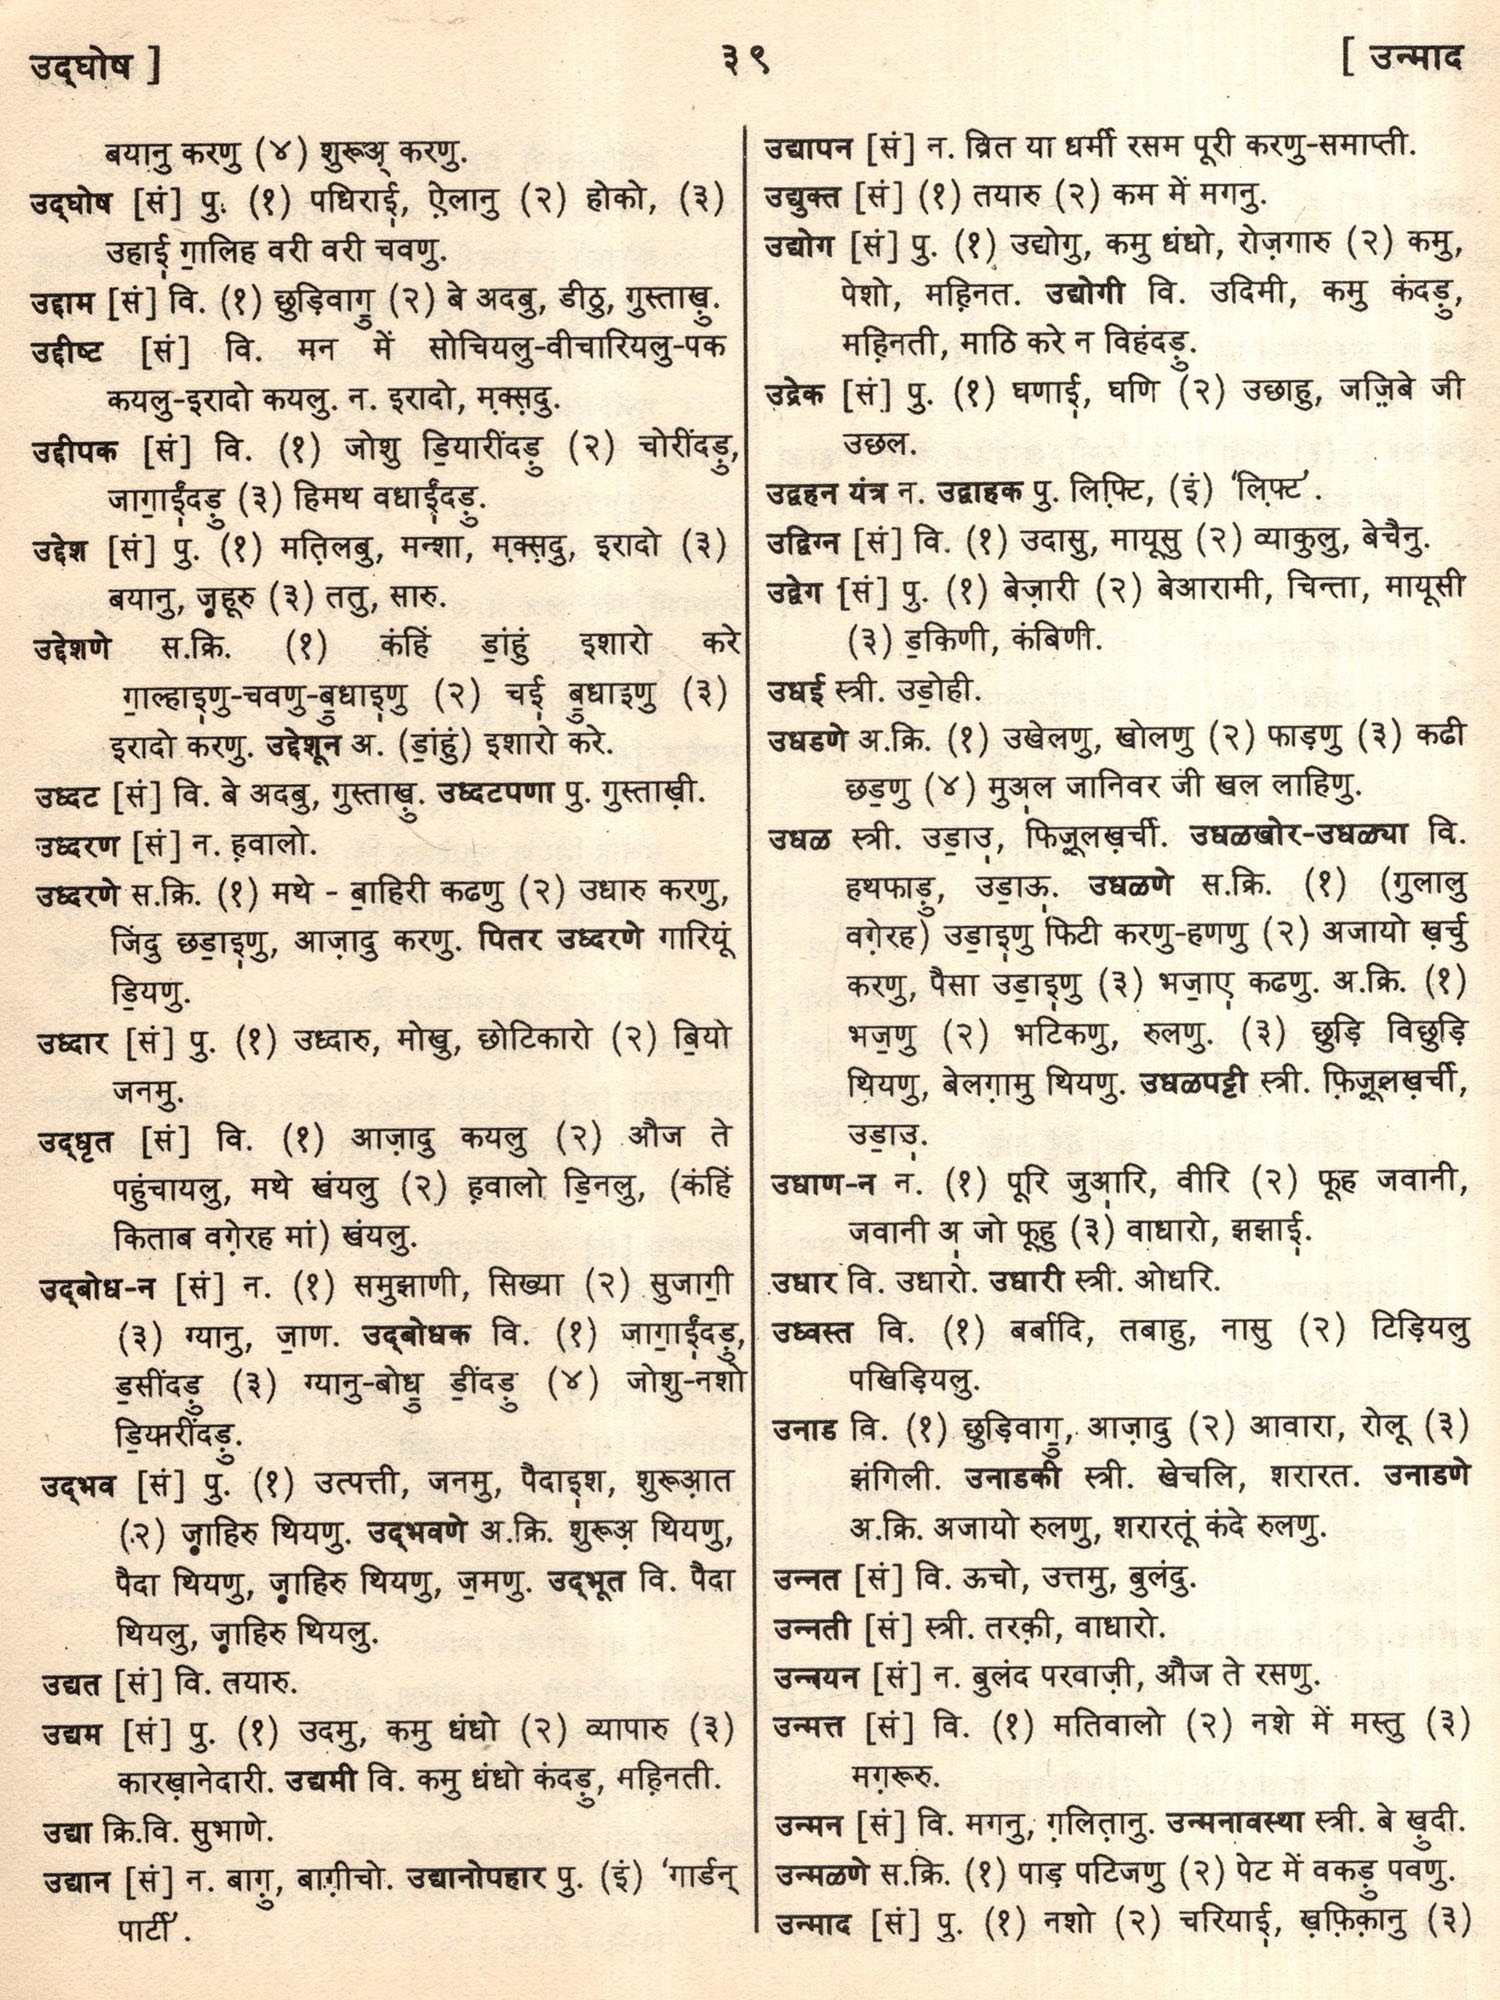 उद्‌घोष ]
३९
[ उन्माद
बयानु करणु (४) शुरूअ् करणु.
उद्‌घोष [सं] पु. (१) पधिराई, ऐलानु (२) होको, (३)
उहाई ॻालिह वरी वरी चवणु.
उद्दाम [सं] वि. (१) छुड़िवाॻु (२) बे अदबु, डीठु, गुस्ताख़ु.
उद्दीष्ट [सं] वि. मन में सोचियलु-वीचारियलु-पक
कयलु-इरादो कयलु. न. इरादो, मक़्सदु.
उद्दीपक [सं] वि. (१) जोशु ॾियारींदड़ु (२) चोरींदड़ु,
जाॻाईंदड़ु (३) हिमथ वधाईंदड़ु.
उद्देश [सं] पु. (१) मत़िलबु, मन्शा, मक़्स़दु, इरादो (३)
बयानु, ज़ुहूरु (३) ततु, सारु.
उद्देशणे स.क्रि. (१) कंहिं ॾांहुं इशारो करे
ॻाल्हाइणु-चवणु-ॿुधाइणु (२) चई ॿुधाइणु (३)
इरादो करणु. उद्देशून अ. (ॾांहुं) इशारो करे.
उध्दट [सं] वि. बे अदबु, गुस्ताख़ु. उध्दटपणा पु. गुस्ताख़ी.
उध्दरण [सं] न. ह़वालो.
उध्दरणे स.क्रि. (१) मथे - ॿाहिरी कढणु (२) उधारु करणु,
जिंदु छॾाइणु, आज़ादु करणु. पितर उध्दरणे गारियूं
ॾियणु.
उध्दार [सं] पु. (१) उध्दारु, मोखु, छोटिकारो (२) ॿियो
जनमु.
उद्‌धृत [सं] वि. (१) आज़ादु कयलु (२) औज ते
पहुंचायलु, मथे खंयलु (२) ह़वालो ॾिनलु, (कंहिं
किताब वग़ेरह मां) खंयलु.
उद्‌बोध-न [सं] न. (१) समुझाणी, सिख्या (२) सुजाॻी
(३) ग्यानु, ॼाण. उद्‌बोधक वि. (१) जाॻाईंदड़ु,
ॾसींदड़ु (३) ग्यानु-बोधु ॾींदड़ु (४) जोशु-नशो
ॾियारींदड़ु.
उद्‌भव [सं] पु. (१) उत्पत्ती, जनमु, पैदाइश, शुरूआ़त
(२) ज़ाहिरु थियणु. उद्‌भवणे अ.क्रि. शुरूअ़ थियणु,
पैदा थियणु, ज़ाहिरु थियणु, ॼमणु. उद्‌भूत वि. पैदा
थियलु, ज़ाहिरु थियलु.
उद्यत [सं] वि. तयारु.
उद्यम [सं] पु. (१) उदमु, कमु धंधो (२) व्यापारु (३)
कारख़ानेदारी. उद्यमी वि. कमु धंधो कंदड़ु, मह़िनती.
उद्या क्रि.वि. सुभाणे.
उद्यान [सं] न. बाग़ु, बाग़ीचो. उद्यानोपहार पु. (इं) 'गार्डन्
पार्टी'.
उद्यापन [सं] न. व्रित या धर्मी रसम पूरी करणु-समाप्ती.
उद्युक्त [सं] (१) तयारु (२) कम में मगनु.
उद्योग [सं] पु. (१) उद्योगु, कमु धंधो, रोज़गारु (२) कमु,
पेशो, मह़िनत. उद्योगी वि. उदिमी, कमु कंदड़ु,
मह़िनती, माठि करे न विहंदड़ु.
उद्रेक [सं] पु. (१) घणाई, घणि (२) उछाहु, जज़िबे जी
उछल.
उद्वहन यंत्र न. उद्वाहक पु. लिफ़्टि, (इं) 'लिफ़्ट'.
उद्विग्न [सं] वि. (१) उदासु, मायूसु (२) व्याकुलु, बेचैनु.
उद्वेग [सं] पु. (१) बेज़ारी (२) बेआरामी, चिन्ता, मायूसी
(३) ॾकिणी, कंबिणी.
उधई स्त्री. उॾोही.
उधडणे अ.क्रि. (१) उखेलणु, खोलणु (२) फाड़णु (३) कढी
छॾणु (४) मुअल जानिवर जी खल लाहिणु.
उधळ स्त्री. उॾाउ, फिज़ूलख़र्ची. उधळखोर-उधळ्या वि.
हथफाड़ु, उॾाऊ. उधळणे स.क्रि. (१) (गुलालु
वग़ेरह) उॾाइणु फिटी करणु-हणणु (२) अजायो ख़र्चु
करणु, पैसा उॾाइणु (३) भॼाए कढणु. अ.क्रि. (१)
भॼणु (२) भटिकणु, रुलणु. (३) छुड़ि विछुड़ि
थियणु, बेलग़ामु थियणु. उधळपट्टी स्त्री. फ़िज़ूलख़र्ची,
उॾाउ.
उधाण-न न. (१) पूरि जुआरि, वीरि (२) फूह जवानी,
जवानी अ जो फूहु (३) वाधारो, झझाई.
उधार वि. उधारो. उधारी स्त्री. ओधरि.
उध्वस्त वि. (१) बर्बादि, तबाहु, नासु (२) टिड़ियलु
पखिड़ियलु.
उनाड वि. (१) छुड़िवाॻु, आज़ादु (२) आवारा, रोलू (३)
झंगिली. उनाडकी स्त्री. खेचलि, शरारत. उनाडणे
अ.क्रि. अजायो रुलणु, शरारतूं कंदे रुलणु.
उन्नत [सं] वि. ऊचो, उत्तमु, बुलंदु.
उन्नती [सं] स्त्री. तरक़ी, वाधारो.
उन्नयन [सं] न. बुलंद परवाज़ी, औज ते रसणु.
उन्मत्त [सं] वि. (१) मतिवालो (२) नशे में मस्तु (३)
मग़रूरु.
उन्मन [सं] वि. मगनु, ग़लित़ानु. उन्मनावस्था स्त्री. बे ख़ुदी.
उन्मळणे स.क्रि. (१) पाड़ पटिजणु (२) पेट में वकड़ु पवणु.
उन्माद [सं] पु. (१) नशो (२) चरियाई, ख़फ़िक़ानु (३)